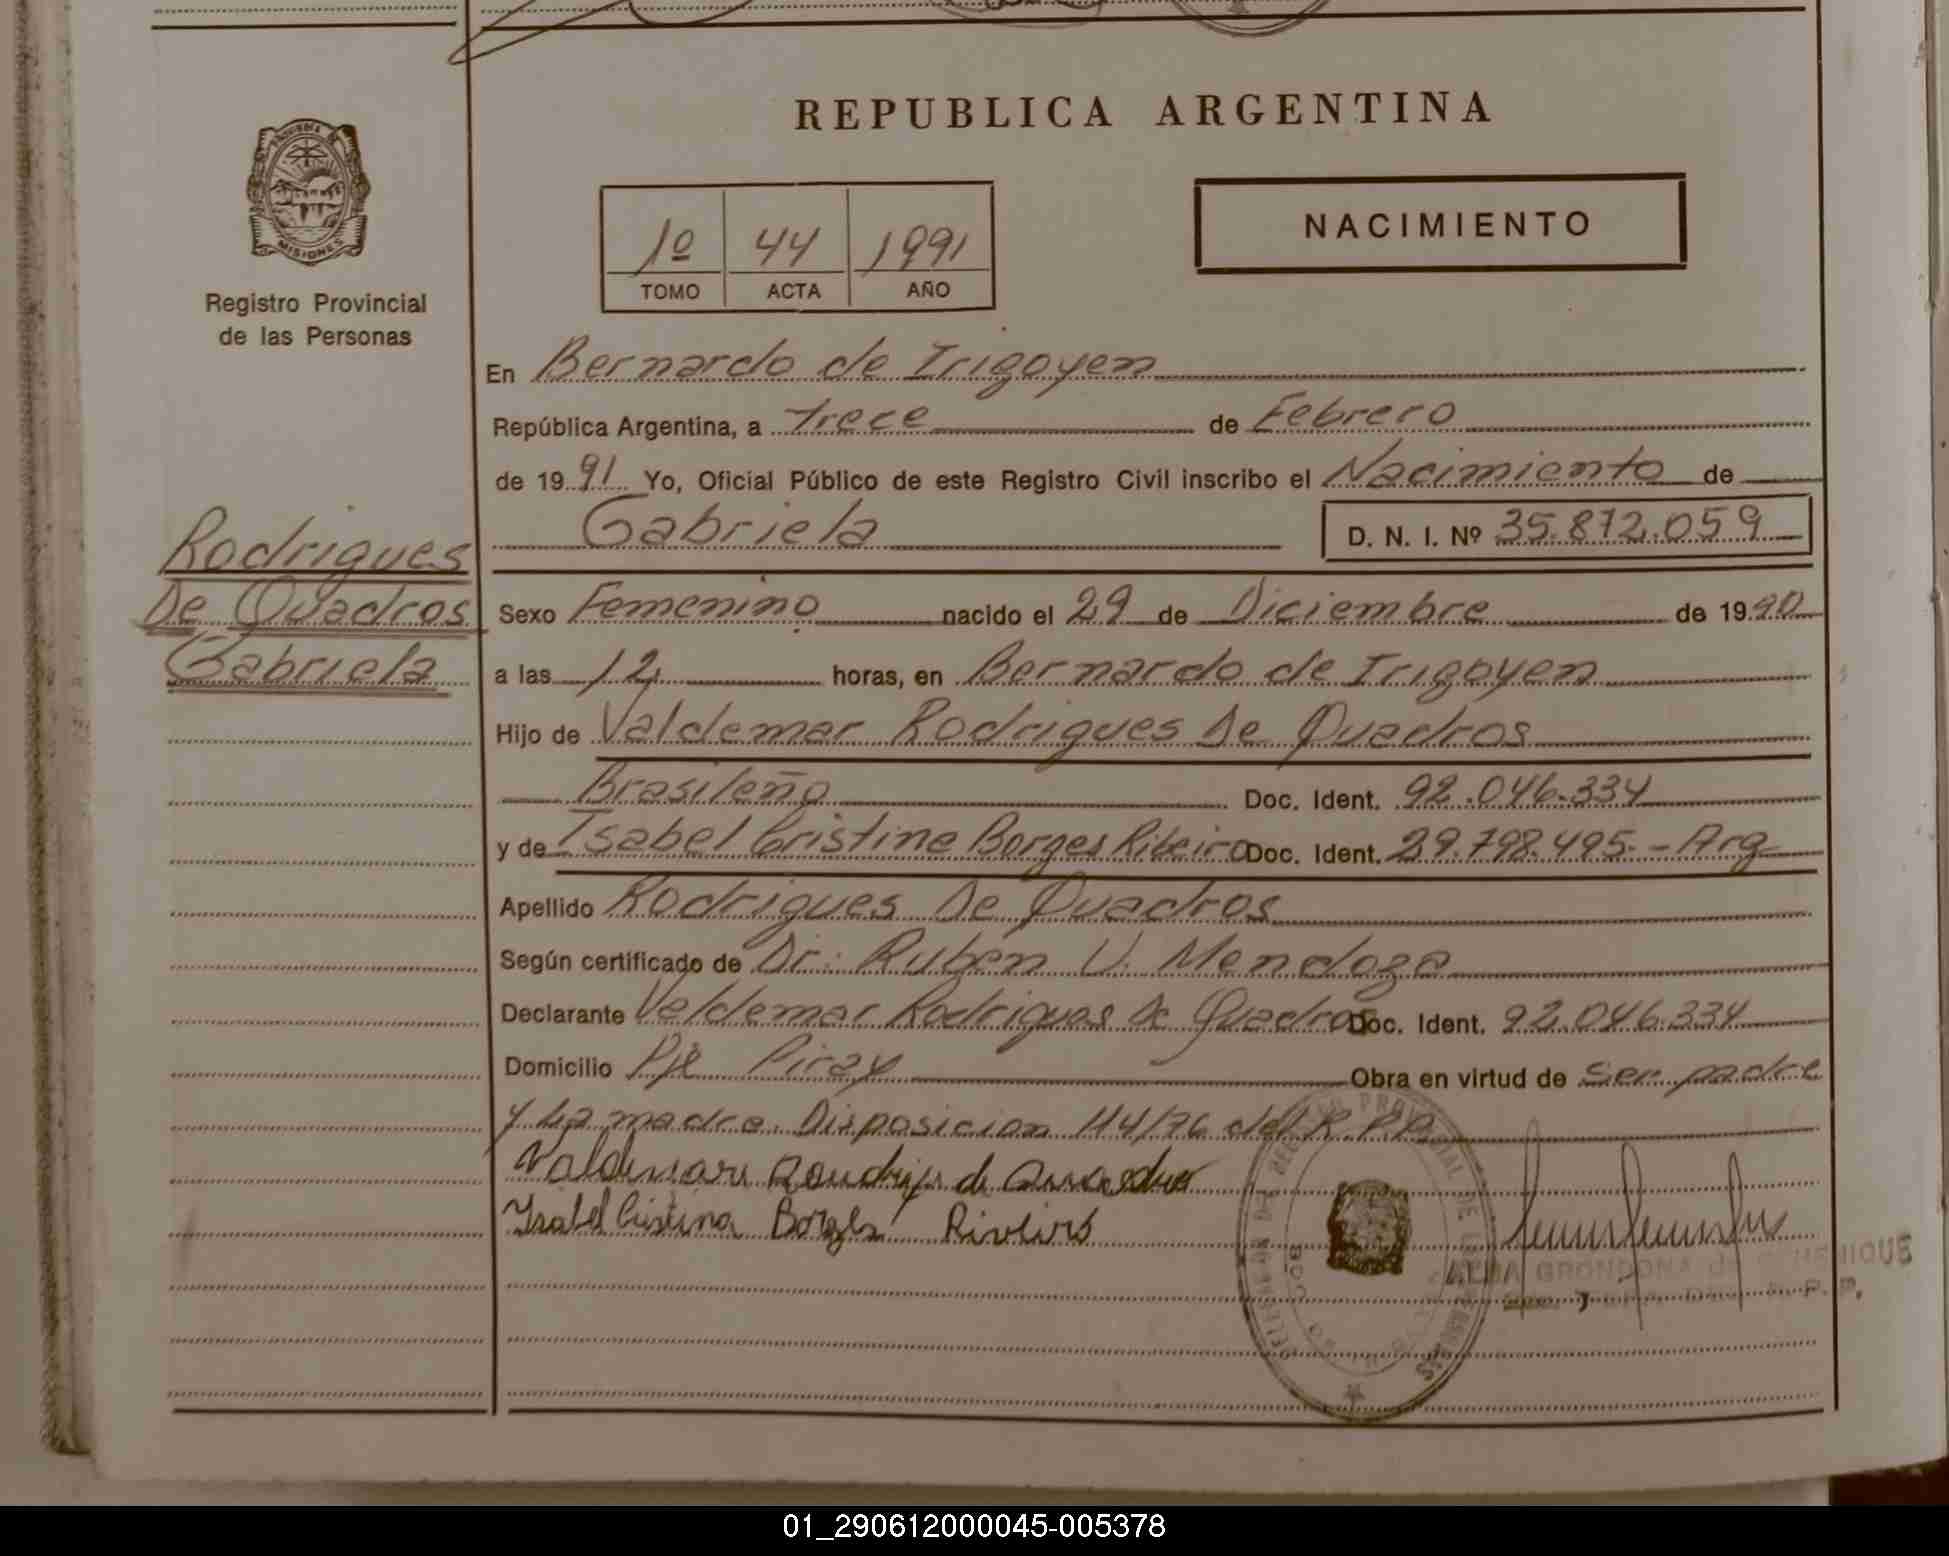 REPUBLICA ARGENTINA
MISIONES
Registro Provincial
de las Personas
1º 44 1991
TOMO ACTA AÑO
NACIMIENTO
En Bernardo de Irigoyen
República Argentina, a trece de Febrero
de 1991 Yo, Oficial Público de este Registro Civil inscribo el Nacimiento de
Gabriela D. N. I. Nº 35.872.059
Rodrigues
De Quadros
Gabriela
Sexo Femenino nacido el 29 de Diciembre de 1990
a las 12 horas, en Bernardo de Irigoyen
Hijo de Valdemar Rodrigues De Quadros
Brasileño Doc. Ident. 92.046.334
y de Isabel Cristine Borges Ribeiro Doc. Ident. 29.798.495 - Arg
Apellido Rodrigues De Quadros
Según certificado de Dr. Ruben V. Mendoza
Declarante Valdemar Rodrigues De Quadros Doc. Ident. 92.046.334
Domicilio Pje Piray Obra en virtud de ser padre
y La madre. Disposicion 114/76 del R.P.P.
Isabel Cristina Borges
ALBA GRONDONA
01_290612000045-005378